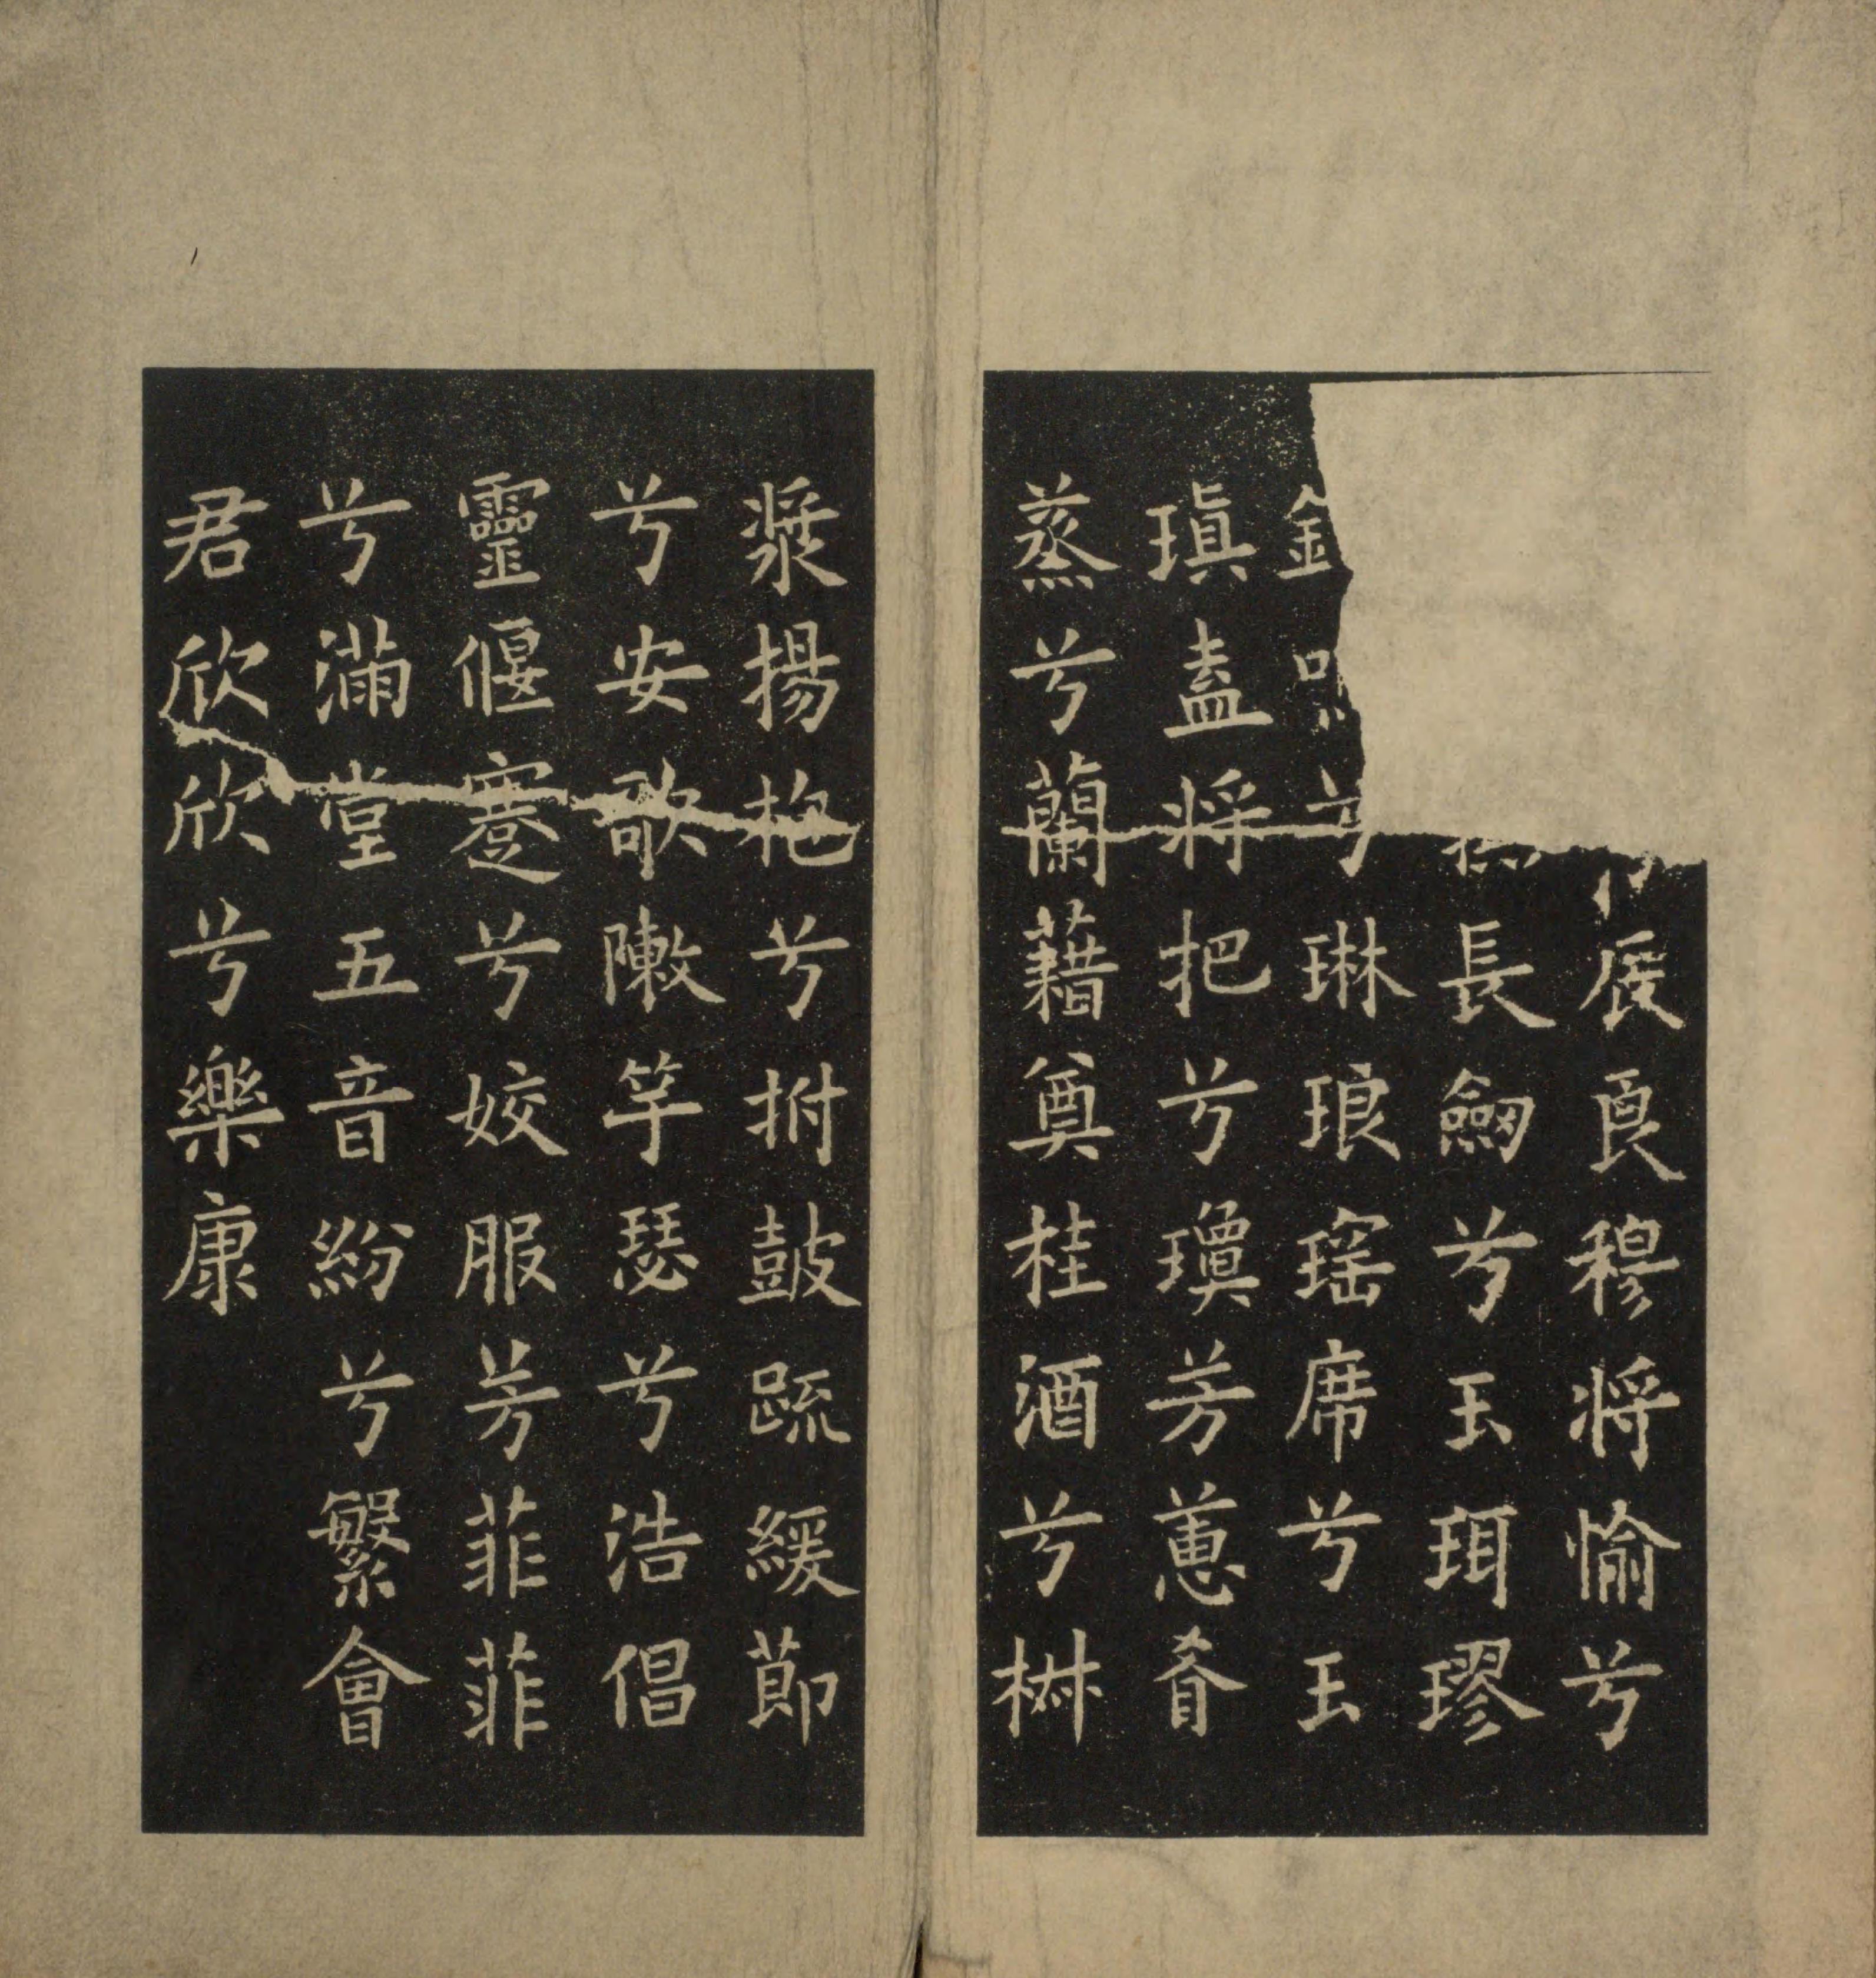 辰良穆将愉兮
長劒兮玉珥璆
兮琳琅瑶席兮玉
瑱盍将把兮瓊芳蕙肴
蒸兮蘭藉奠桂酒兮椒
漿揚枹兮拊鼓疏緩節
兮安歌敶竽瑟兮浩倡
靈偃蹇兮姣服芳菲菲
兮滿堂五音紛兮繁會
君欣欣兮樂康